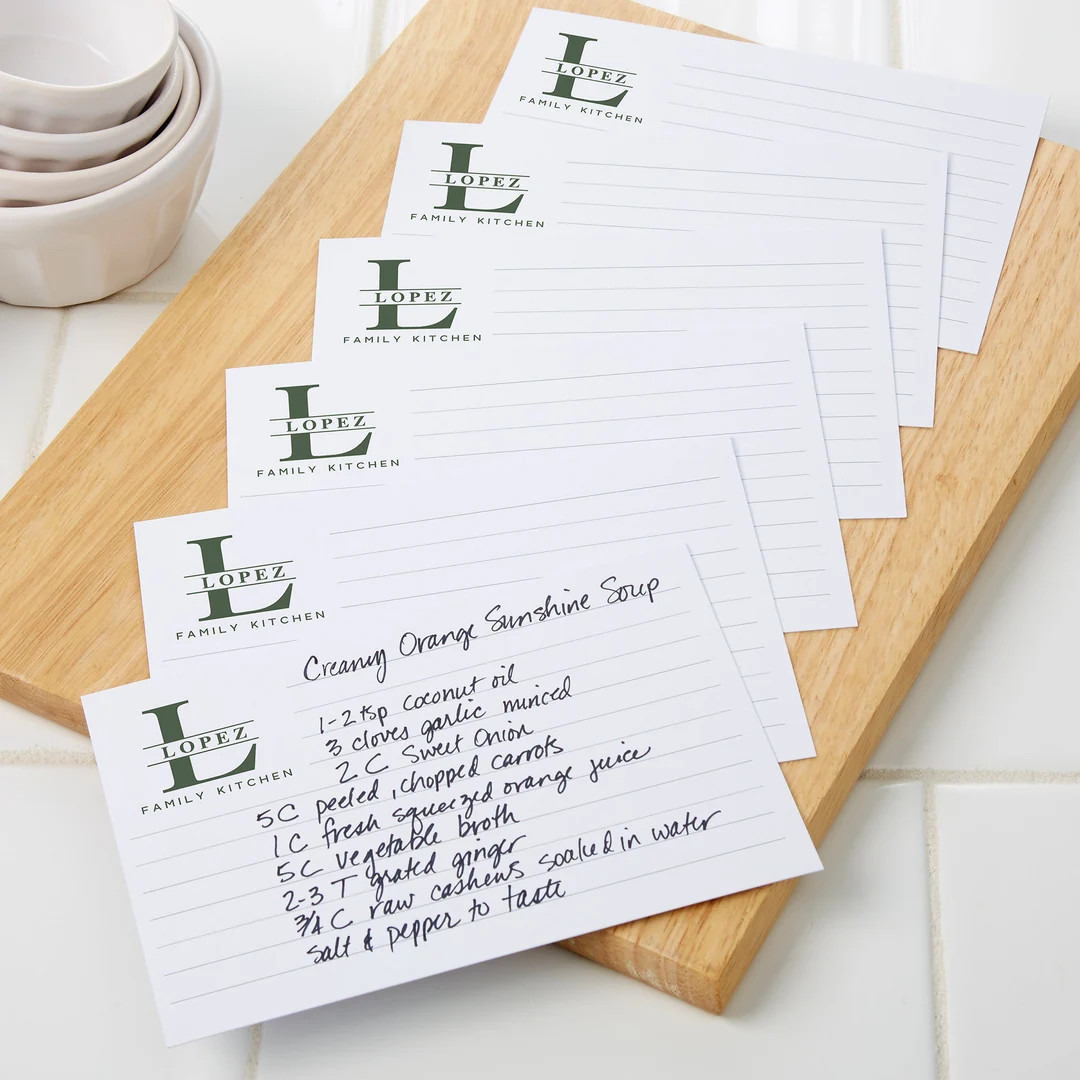 L
LOPEZ
FAMILY KITCHEN
L
LOPEZ
FAMILY KITCHEN
L
LOPEZ
FAMILY KITCHEN
L
LOPEZ
FAMILY KITCHEN
L
LOPEZ
FAMILY KITCHEN
L
LOPEZ
FAMILY KITCHEN
Creamy Orange Sunshine Soup
1-2 tsp coconut oil
3 cloves garlic minced
2 C Sweet Onion
5C peeled, chopped carrots
1C fresh squeezed orange juice
5C vegetable broth
2-3 T grated ginger
3/4 C raw cashews soaked in water
salt & pepper to taste